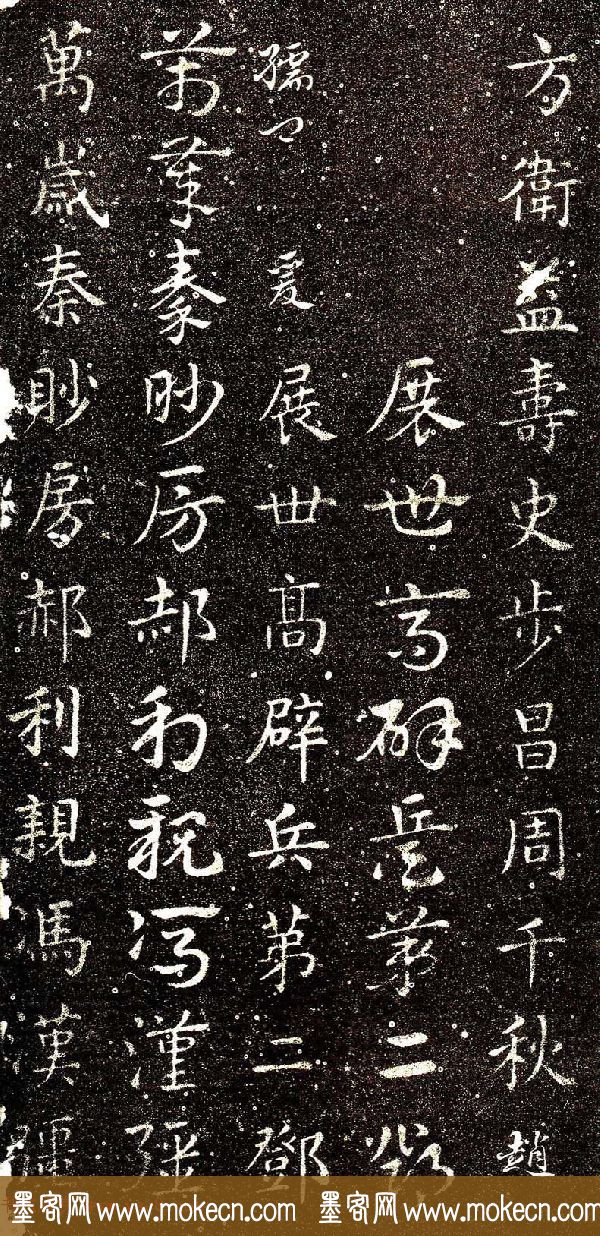 方衛益壽史步昌周千秋趙
展世高辟兵第二鄧
孺卿 爰展世高辟兵第二鄧
萬歲秦眇房郝利親馮漢彊
萬歲秦眇房郝利親馮漢彊
墨客网 www.mokecn.com 墨客网 www.mokecn.com